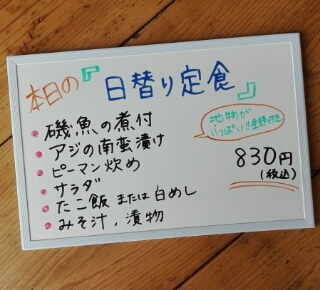 本日の『日替り定食』
磯魚の煮付
アジの南蛮漬け
ピーマン炒め
サラダ
たこ飯 または 白めし
みそ汁、漬物
地物が
いっぱい!!
830円
(税込)